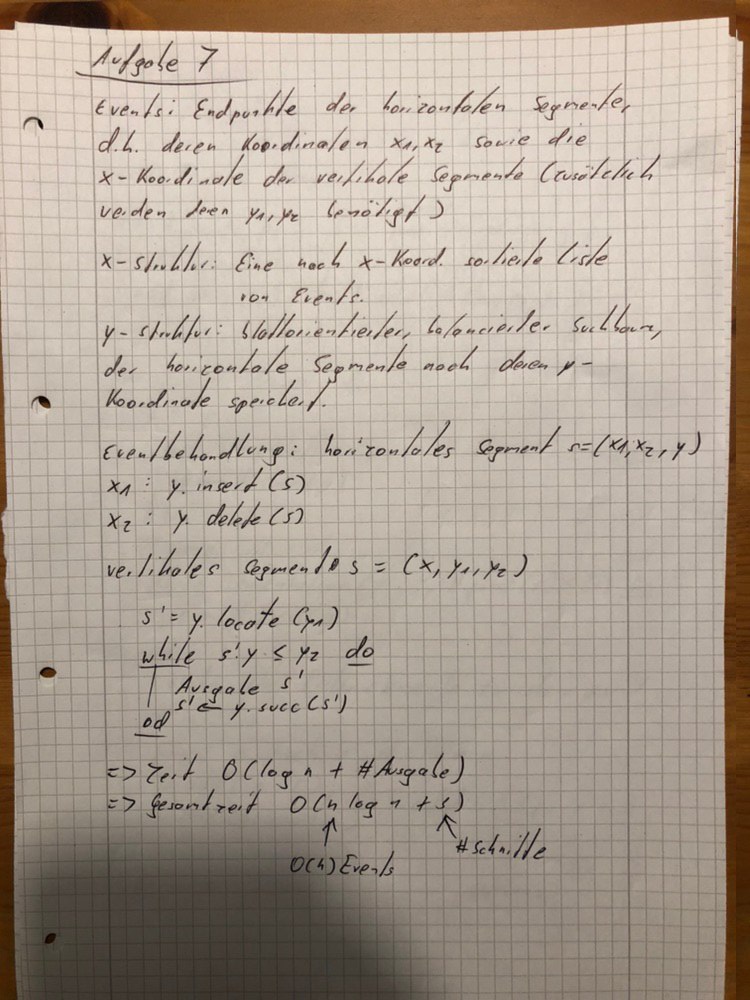 Aufgabe 7
Events: Endpunkte der horizontalen Segmente,
d.h. deren Koordinaten x1, x2 sowie die
x-Koordinate der vertikale Segmente (zusätzlich
werden deren y1, y2 benötigt)
x-struktur: Eine nach x-Koord. sortierte Liste
von Events.
y-struktur: blattorientierter, balancierter Suchbaum,
der horizontale Segmente nach deren y-
Koordinate speichert.
Eventbehandlung: horizontales Segment s=(x1, x2, y)
x1 : y. insert (s)
x2 : y. delete (s)
vertikales Segment s = (x, y1, y2)
s' = y. locate (y1)
while s'.y ≤ y2 do
Ausgabe s'
s' ← y. succ (s')
od
=> Zeit O(log n + #Ausgabe)
=> Gesamtzeit O(n log n + s)
↑ ↖ #Schnitte
O(n) Events